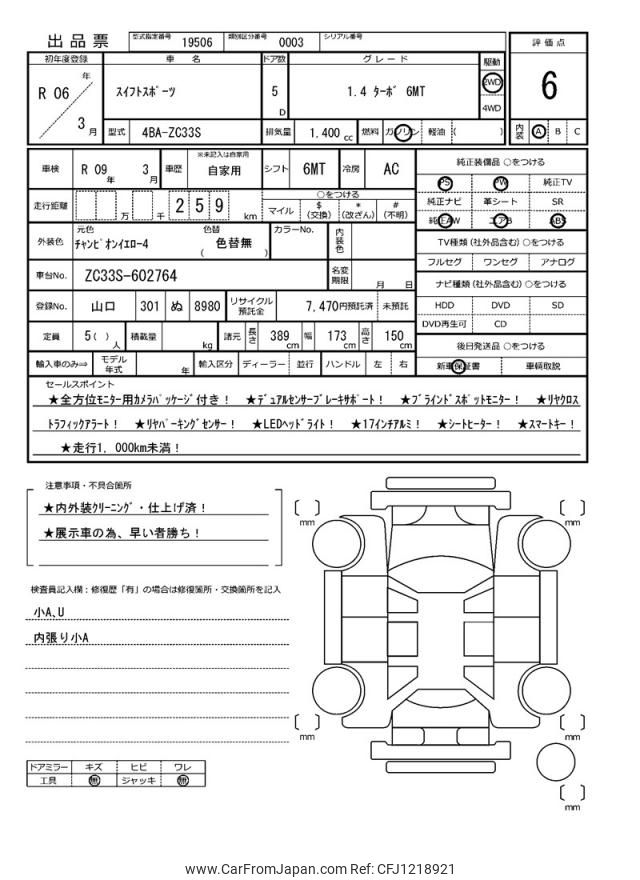 出品票 型式指定番号 19506 類別区分番号 0003 シリアル番号
評価点
6
内装 A B C
初年度登録 車名 ドア数 グレード 駆動
R 06 年 3 月
スイフトスポーツ 5 D 1.4 ターボ 6MT 2WD 4WD
型式 4BA-ZC33S 排気量 1.400 cc 燃料 ガソリン 軽油 ( )
車検 R 09 年 3 月 車歴 ※未記入は自家用 自家用 シフト 6MT 冷房 AC
走行距離 万 千 2 5 9 km ○をつける
マイル $(交換) *(改ざん) #(不明)
外装色 元色 チャンピオンイエロー4 色替 ( 色替無 ) カラーNo. 内装色
車台No. ZC33S-602764 名変期限 月 日
登録No. 山口 301 ぬ 8980 リサイクル預託金 7,470円預託済 未預託
定員 5( ) 人 積載量 kg 諸元 長さ 389 cm 幅 173 cm 高さ 150 cm
輸入車のみ⇒ モデル年式 年 輸入区分 ディーラー 並行 ハンドル 左 右
純正装備品 ○をつける
PS PW 純正TV
純正ナビ 革シート SR
純正AW エアB ABS
TV種類 (社外品含む) ○をつける
フルセグ ワンセグ アナログ
ナビ種類 (社外品含む) ○をつける
HDD DVD SD
DVD再生可 CD
後日発送品 ○をつける
新車保証書 車輌取説
セールスポイント
★全方位モニター用カメラパッケージ付き! ★デュアルセンサーブレーキサポート! ★ブラインドスポットモニター! ★リヤクロス
トラフィックアラート! ★リヤパーキングセンサー! ★LEDヘッドライト! ★17インチアルミ! ★シートヒーター! ★スマートキー!
★走行1,000km未満!
注意事項・不具合箇所
★内外装クリーニング・仕上げ済!
★展示車の為、早い者勝ち!
検査員記入欄:修復歴「有」の場合は修復箇所・交換箇所を記入
小A､U
内張り小A
ドアミラー キズ ヒビ ワレ
工具 無 ジャッキ 無
mm
mm
mm
mm
mm
www.CarFromJapan.com Ref: CFJ1218921